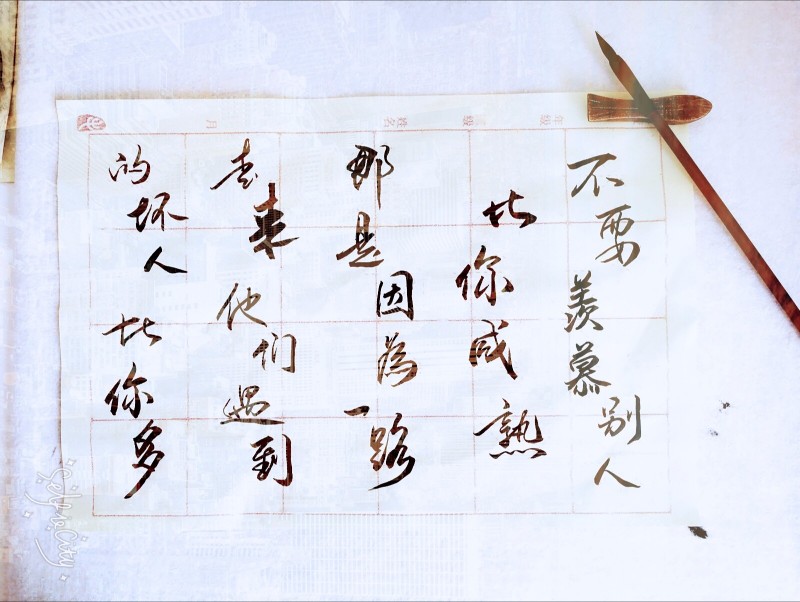 不要羡慕别人
比你成熟
那是因為一路
走来他们遇到
的坏人比你多
姓名
月